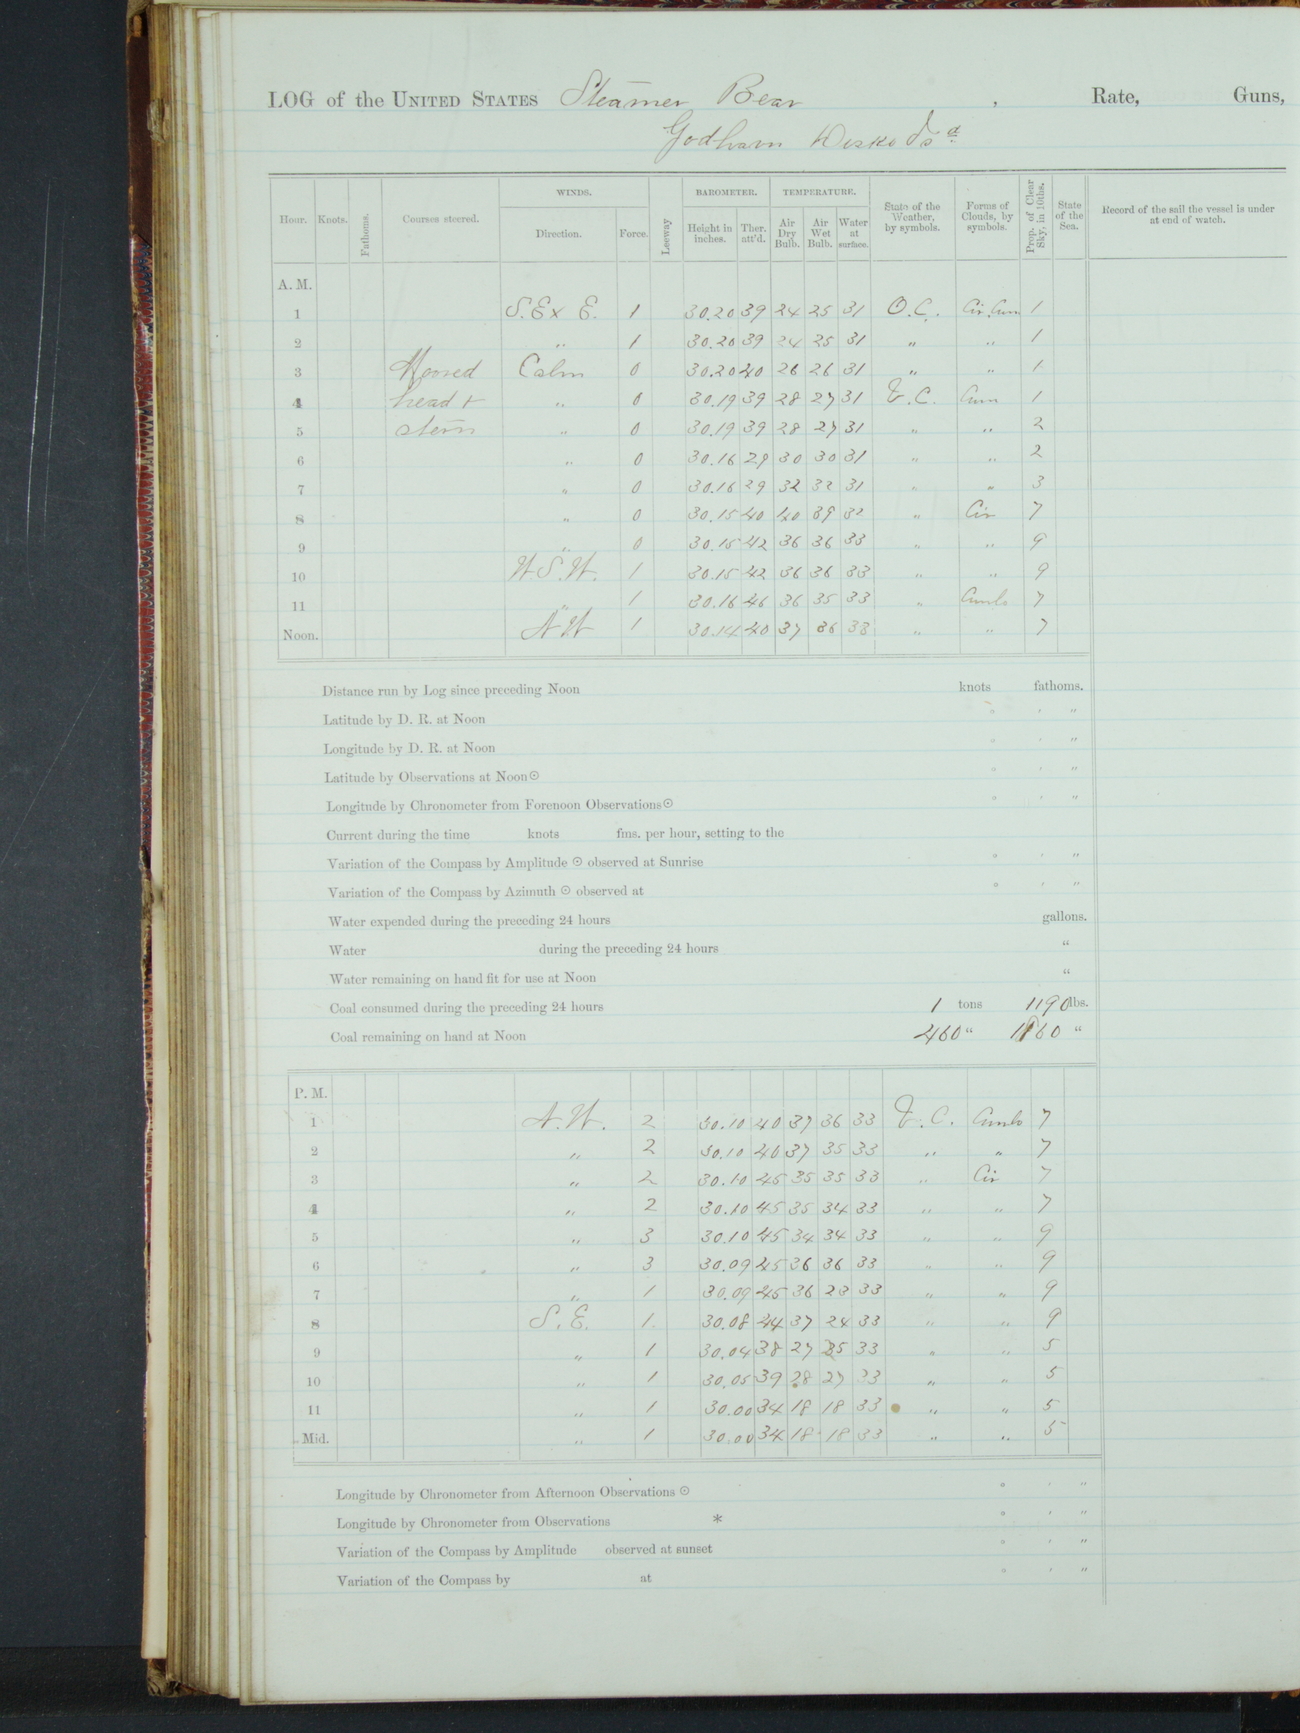 LOG of the UNITED STATES Steamer Bear , Rate, Guns,
Godhavn Disko Isd
Hour. Knots. Fathoms. Courses steered. WINDS. Direction. Force. Leeway BAROMETER. Height in inches. Ther. att'd. TEMPERATURE. Air Dry Bulb. Air Wet Bulb. Water at surface. State of the Weather, by symbols. Forms of Clouds, by symbols. Prop. of Clear Sky, in 10ths. State of the Sea. Record of the sail the vessel is under at end of watch.
A. M.
1 S.Ex E. 1 30.20 39 24 25 31 O.C. Cir.Cum 1
2 " 1 30.20 39 24 25 31 " " 1
3 Moored Calm 0 30.20 40 26 26 31 " " 1
4 head + " 0 30.19 39 28 27 31 b.C. Cum 1
5 stern " 0 30.19 39 28 27 31 " " 2
6 " 0 30.16 29 30 30 31 " " 2
7 " 0 30.16 29 32 32 31 " " 3
8 " 0 30.15 40 40 39 32 " Cir 7
9 " 0 30.15 42 36 36 33 " " 9
10 W.S.W. 1 30.15 42 36 36 33 " " 9
11 " 1 30.16 46 36 35 33 " Cumlo 7
Noon. N.W 1 30.14 40 37 36 33 " " 7
Distance run by Log since preceding Noon knots fathoms.
Latitude by D. R. at Noon ° ′ ″
Longitude by D. R. at Noon ° ′ ″
Latitude by Observations at Noon ☉ ° ′ ″
Longitude by Chronometer from Forenoon Observations ☉ ° ′ ″
Current during the time knots fms. per hour, setting to the
Variation of the Compass by Amplitude ☉ observed at Sunrise ° ′ ″
Variation of the Compass by Azimuth ☉ observed at ° ′ ″
Water expended during the preceding 24 hours gallons.
Water during the preceding 24 hours "
Water remaining on hand fit for use at Noon "
Coal consumed during the preceding 24 hours 1 tons 1190 lbs.
Coal remaining on hand at Noon 460 " 1160 "
P. M.
1 N.W. 2 30.10 40 37 36 33 b.C. Cumlo 7
2 " 2 30.10 40 37 35 33 " " 7
3 " 2 30.10 45 35 35 33 " Cir 7
4 " 2 30.10 45 35 34 33 " " 7
5 " 3 30.10 45 34 34 33 " " 9
6 " 3 30.09 45 36 36 33 " " 9
7 " 1 30.09 45 36 23 33 " " 9
8 S.E. 1 30.08 44 37 24 33 " " 9
9 " 1 30.04 38 27 25 33 " " 5
10 " 1 30.05 39 28 27 33 " " 5
11 " 1 30.00 34 18 18 33 " " 5
Mid. " 1 30.00 34 18 18 33 " " 5
Longitude by Chronometer from Afternoon Observations ☉ ° ′ ″
Longitude by Chronometer from Observations * ° ′ ″
Variation of the Compass by Amplitude observed at sunset ° ′ ″
Variation of the Compass by at ° ′ ″